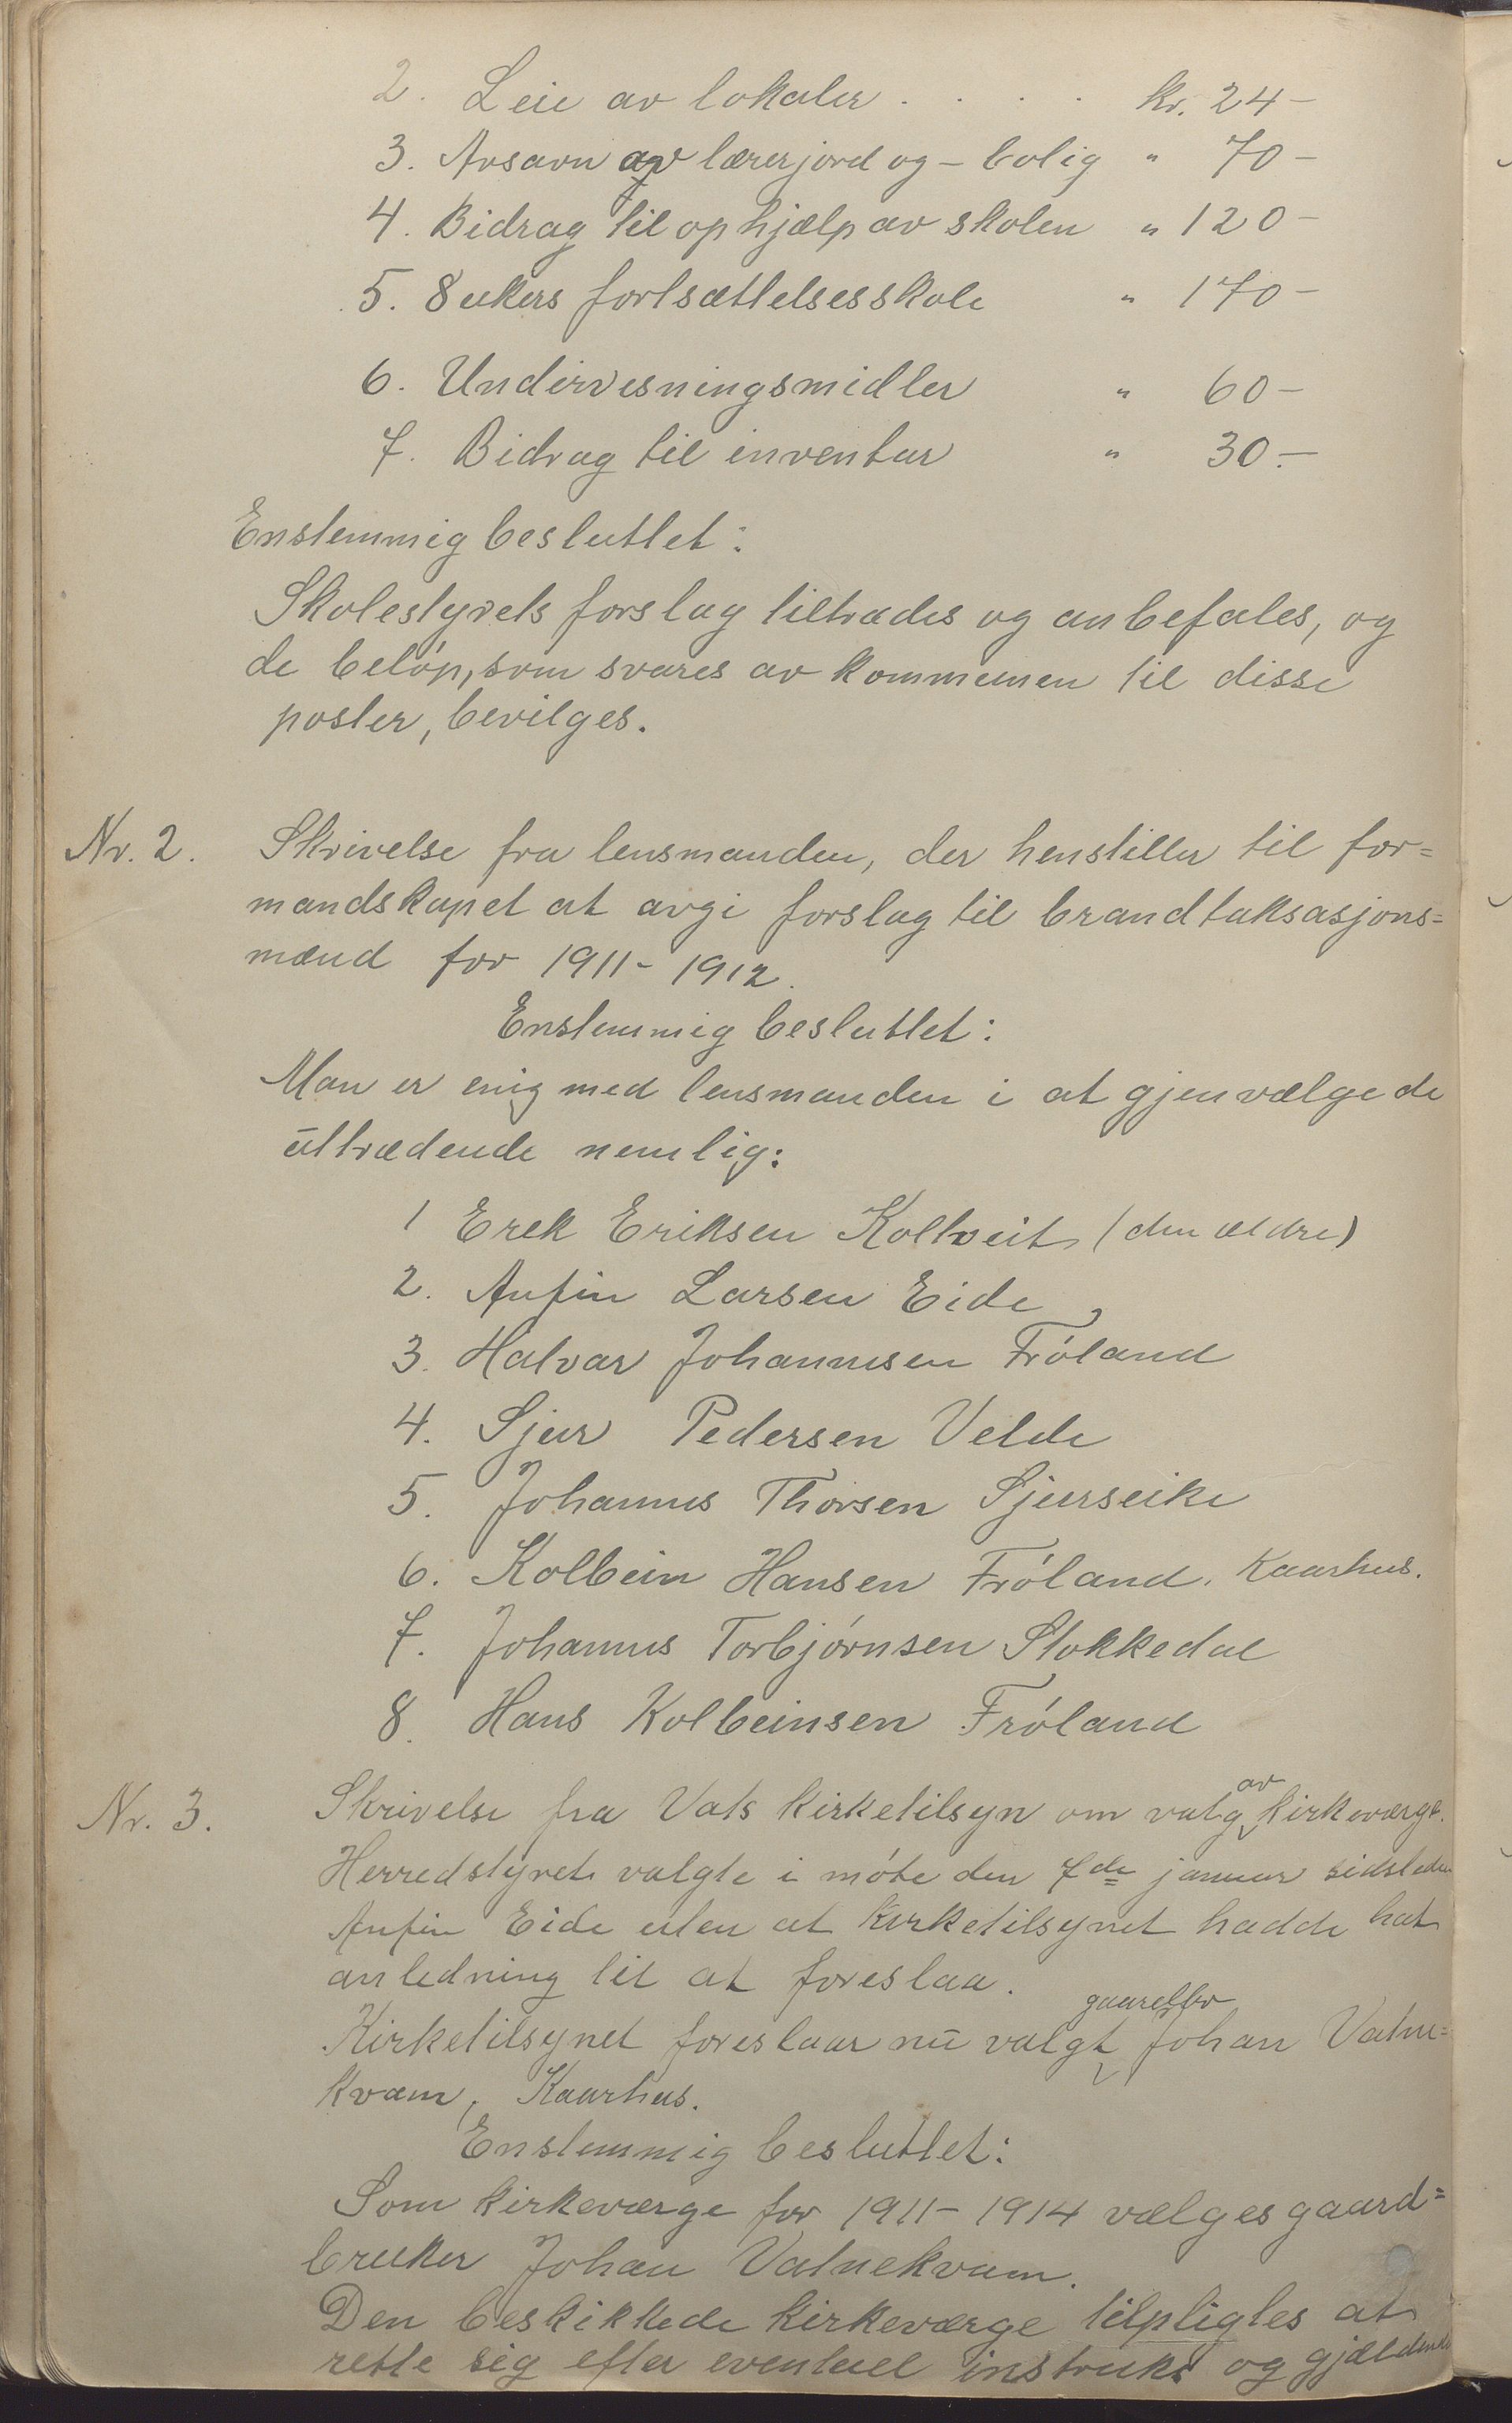 2. Leie av lokaler . . . . kr. 24-
3. Avsavn av lærerjord og - bolig " 70-
4. Bidrag til ophjælp av skolen " 120-
5. 8 ukers fortsættelsesskole " 170-
6. Undervisningsmidler " 60-
7. Bidrag til inventar " 30.-
Enstemmig besluttet:
Skolestyrets forslag tiltrædes og anbefales, og
de beløp, som svares av kommunen til disse
poster, bevilges.
Nr. 2. Skrivelse fra lensmanden, der henstiller til for=
mandskapet at avgi forslag til brandtaksasjons=
mænd for 1911-1912.
Enstemmig besluttet:
Man er enig med lensmanden i at gjenvælge de
uttrædende nemlig:
1 Erek Eriksen Koltveit (den ældre)
2. Anfin Larsen Eide
3. Halvar Johannesen Frøland
4. Sjur Pedersen Velde
5. Johannes Thorsen Sjurseike
6. Kolbein Hansen Frøland. Kaarhus.
7. Johannes Torbjørnsen Stokkedal
8. Hans Kolbeinsen Frøland
Nr. 3. Skrivelse fra Vats kirketilsyn om valg av kirkeværge.
Herredstyret valgte i møte den 7de januar sidstleden
Anfin Eide uten at Kirketilsynet hadde hat
anledning til at foreslaa.
Kirketilsynet foreslaar nu valgt gaardbr Johan Vatne=
kvam, Kaarhus.
Enstemmig besluttet:
Som kirkeværge for 1911-1914 vælges gaard=
bruker Johan Vatnekvam.
Den beskikkede kirkeværge tilpligtes at
rette sig efter eventuel instruks og gjældende